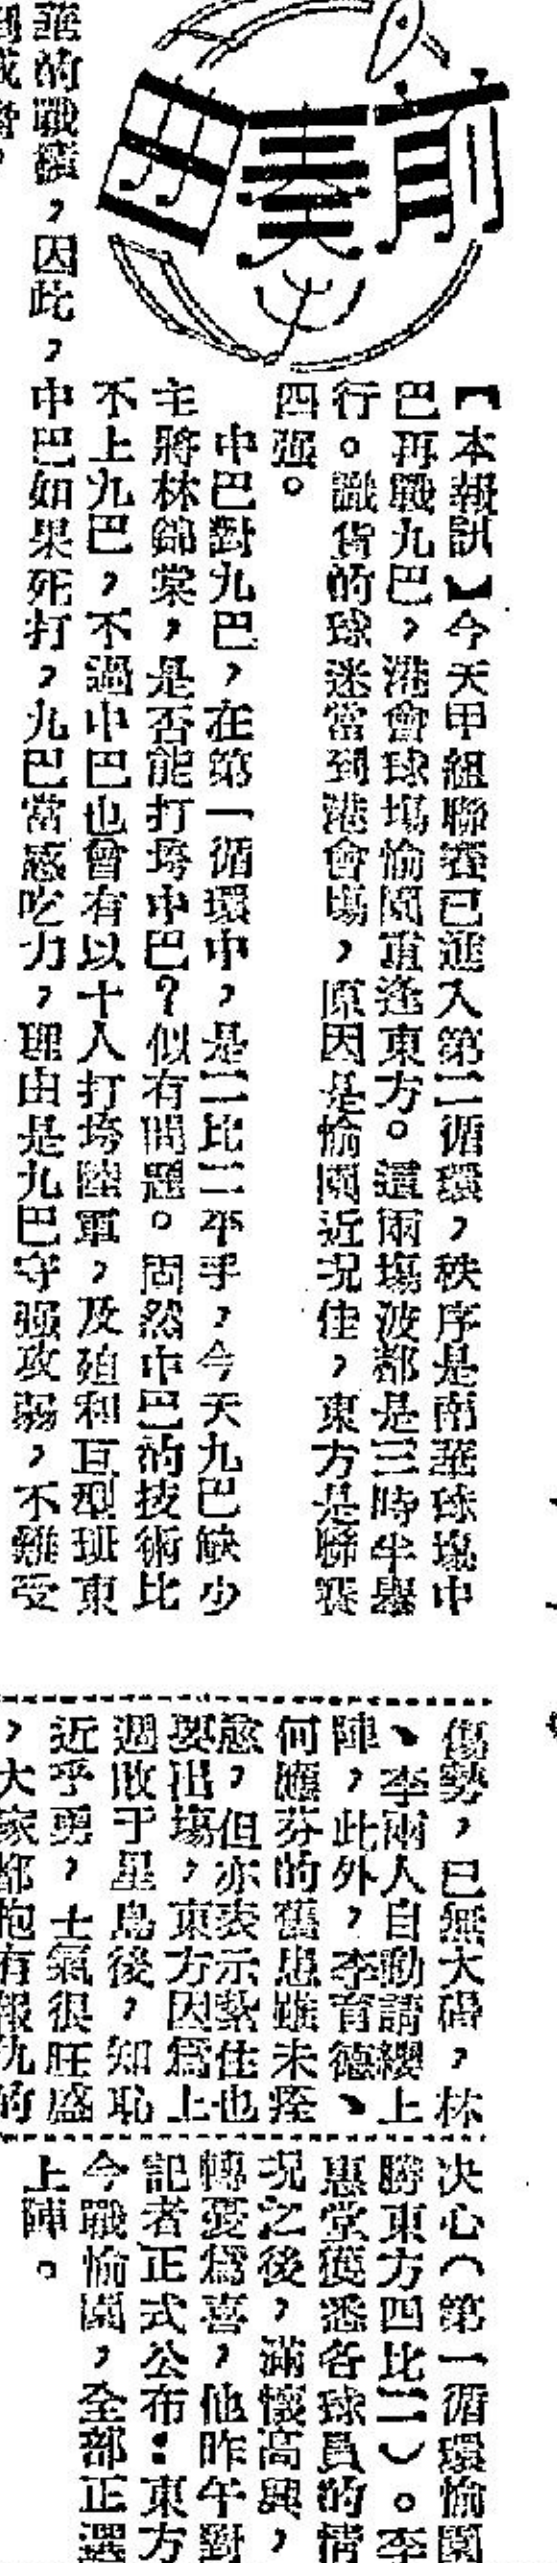 前奏曲
【本報訊】今天甲組聯賽已進入第二循環，秩序是南華球塲中
巴再戰九巴，港會球塲愉園重逢東方。這兩塲波都是三時半舉
行。識貨的球迷當到港會塲，原因是愉園近况佳，東方是聯賽
四强。
中巴對九巴，在第一循環中，是二比二平手，今天九巴缺少
主將林錦棠，是否能打垮中巴？似有問題。固然中巴的技術比
不上九巴，不過中巴也曾有以十人打垮陸軍，及廹和巨型班東
華的戰績，因此，中巴如果死打，九巴當感吃力，理由是九巴守强攻弱，不難受
傷勢，已無大碍，林
、李兩人自動請纓上
陣，此外，李育德、
何應芬的舊患雖未痊
愈，但亦表示紮住也
要出塲，東方因爲上
週敗于星島後，知恥
近乎勇，士氣很旺盛
，大家都抱有報仇的
决心（第一循環愉園
勝東方四比二）。李
惠堂獲悉各球員的情
况之後，滿懷高興，
轉憂爲喜，他昨午對
記者正式公布：東方
今戰愉園，全部正選
上陣。